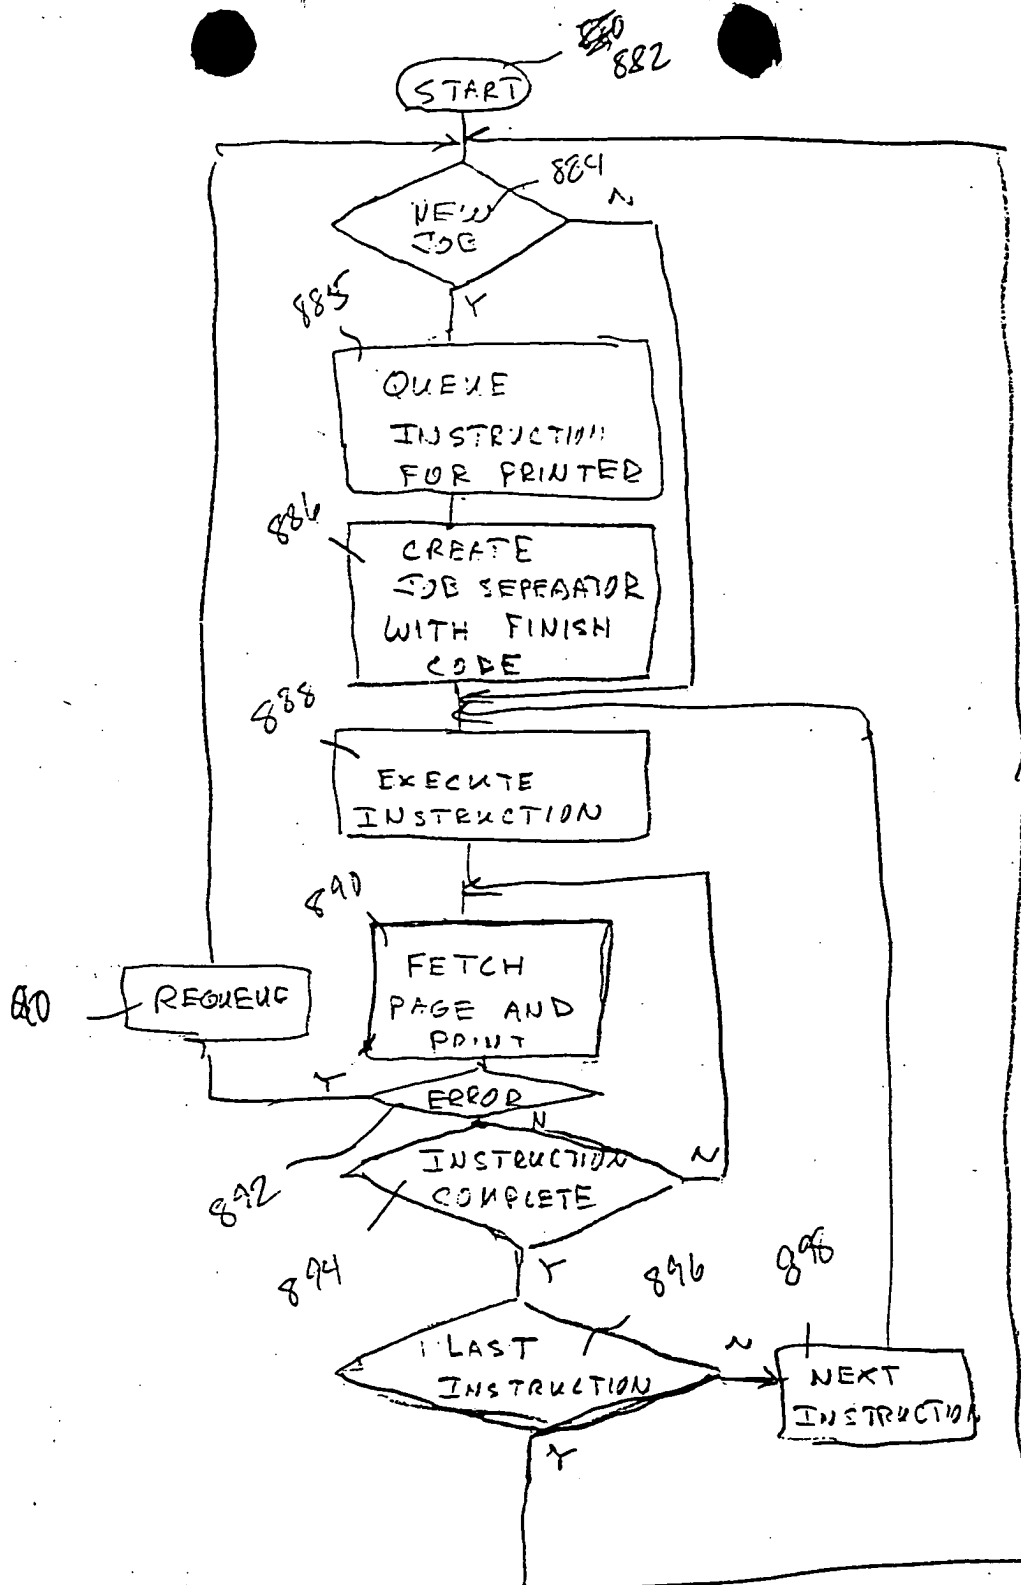 882
START
884
N
NEW
JOB
885
Y
QUEUE
INSTRUCTION
FOR PRINTER
886
CREATE
JOB SEPERATOR
WITH FINISH
CODE
888
EXECUTE
INSTRUCTION
890
FETCH
PAGE AND
PRINT
REQUEUE
Y
ERROR
N
892
INSTRUCTION
COMPLETE
N
894
Y
896
898
LAST
INSTRUCTION
N
NEXT
INSTRUCTION
Y